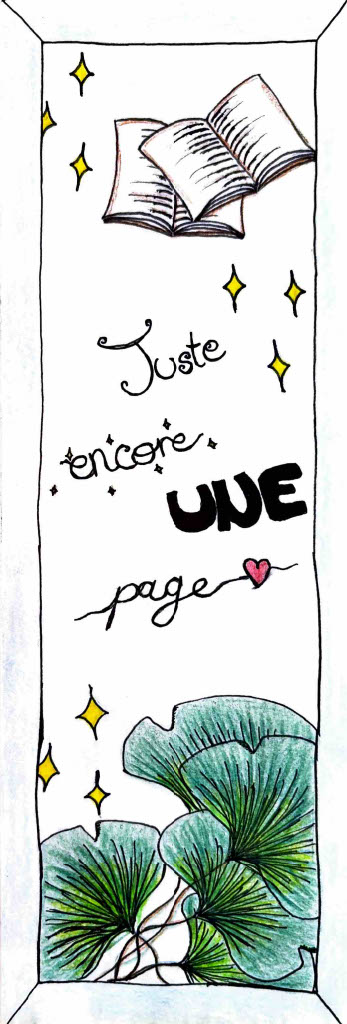 Juste
encore
UNE
page